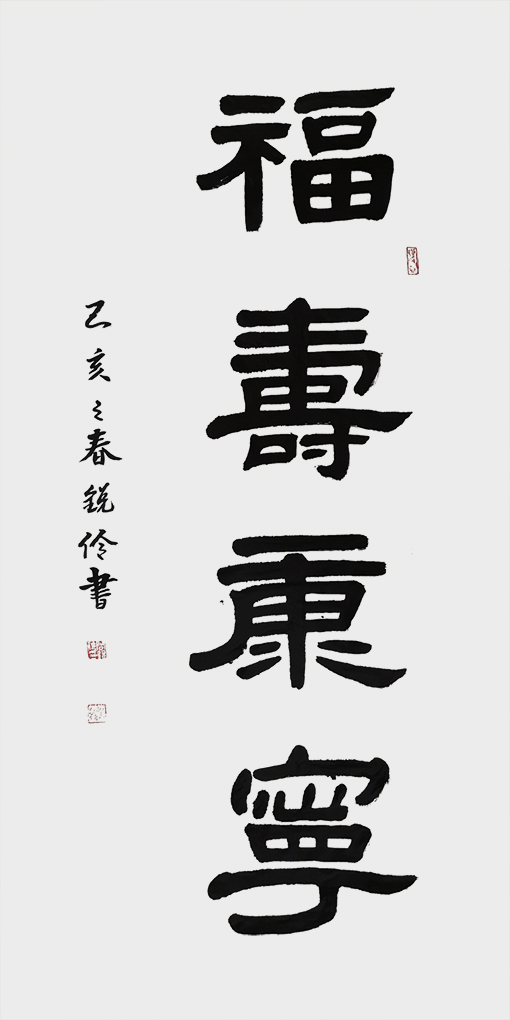 福壽康寧
己亥之春銳伶書